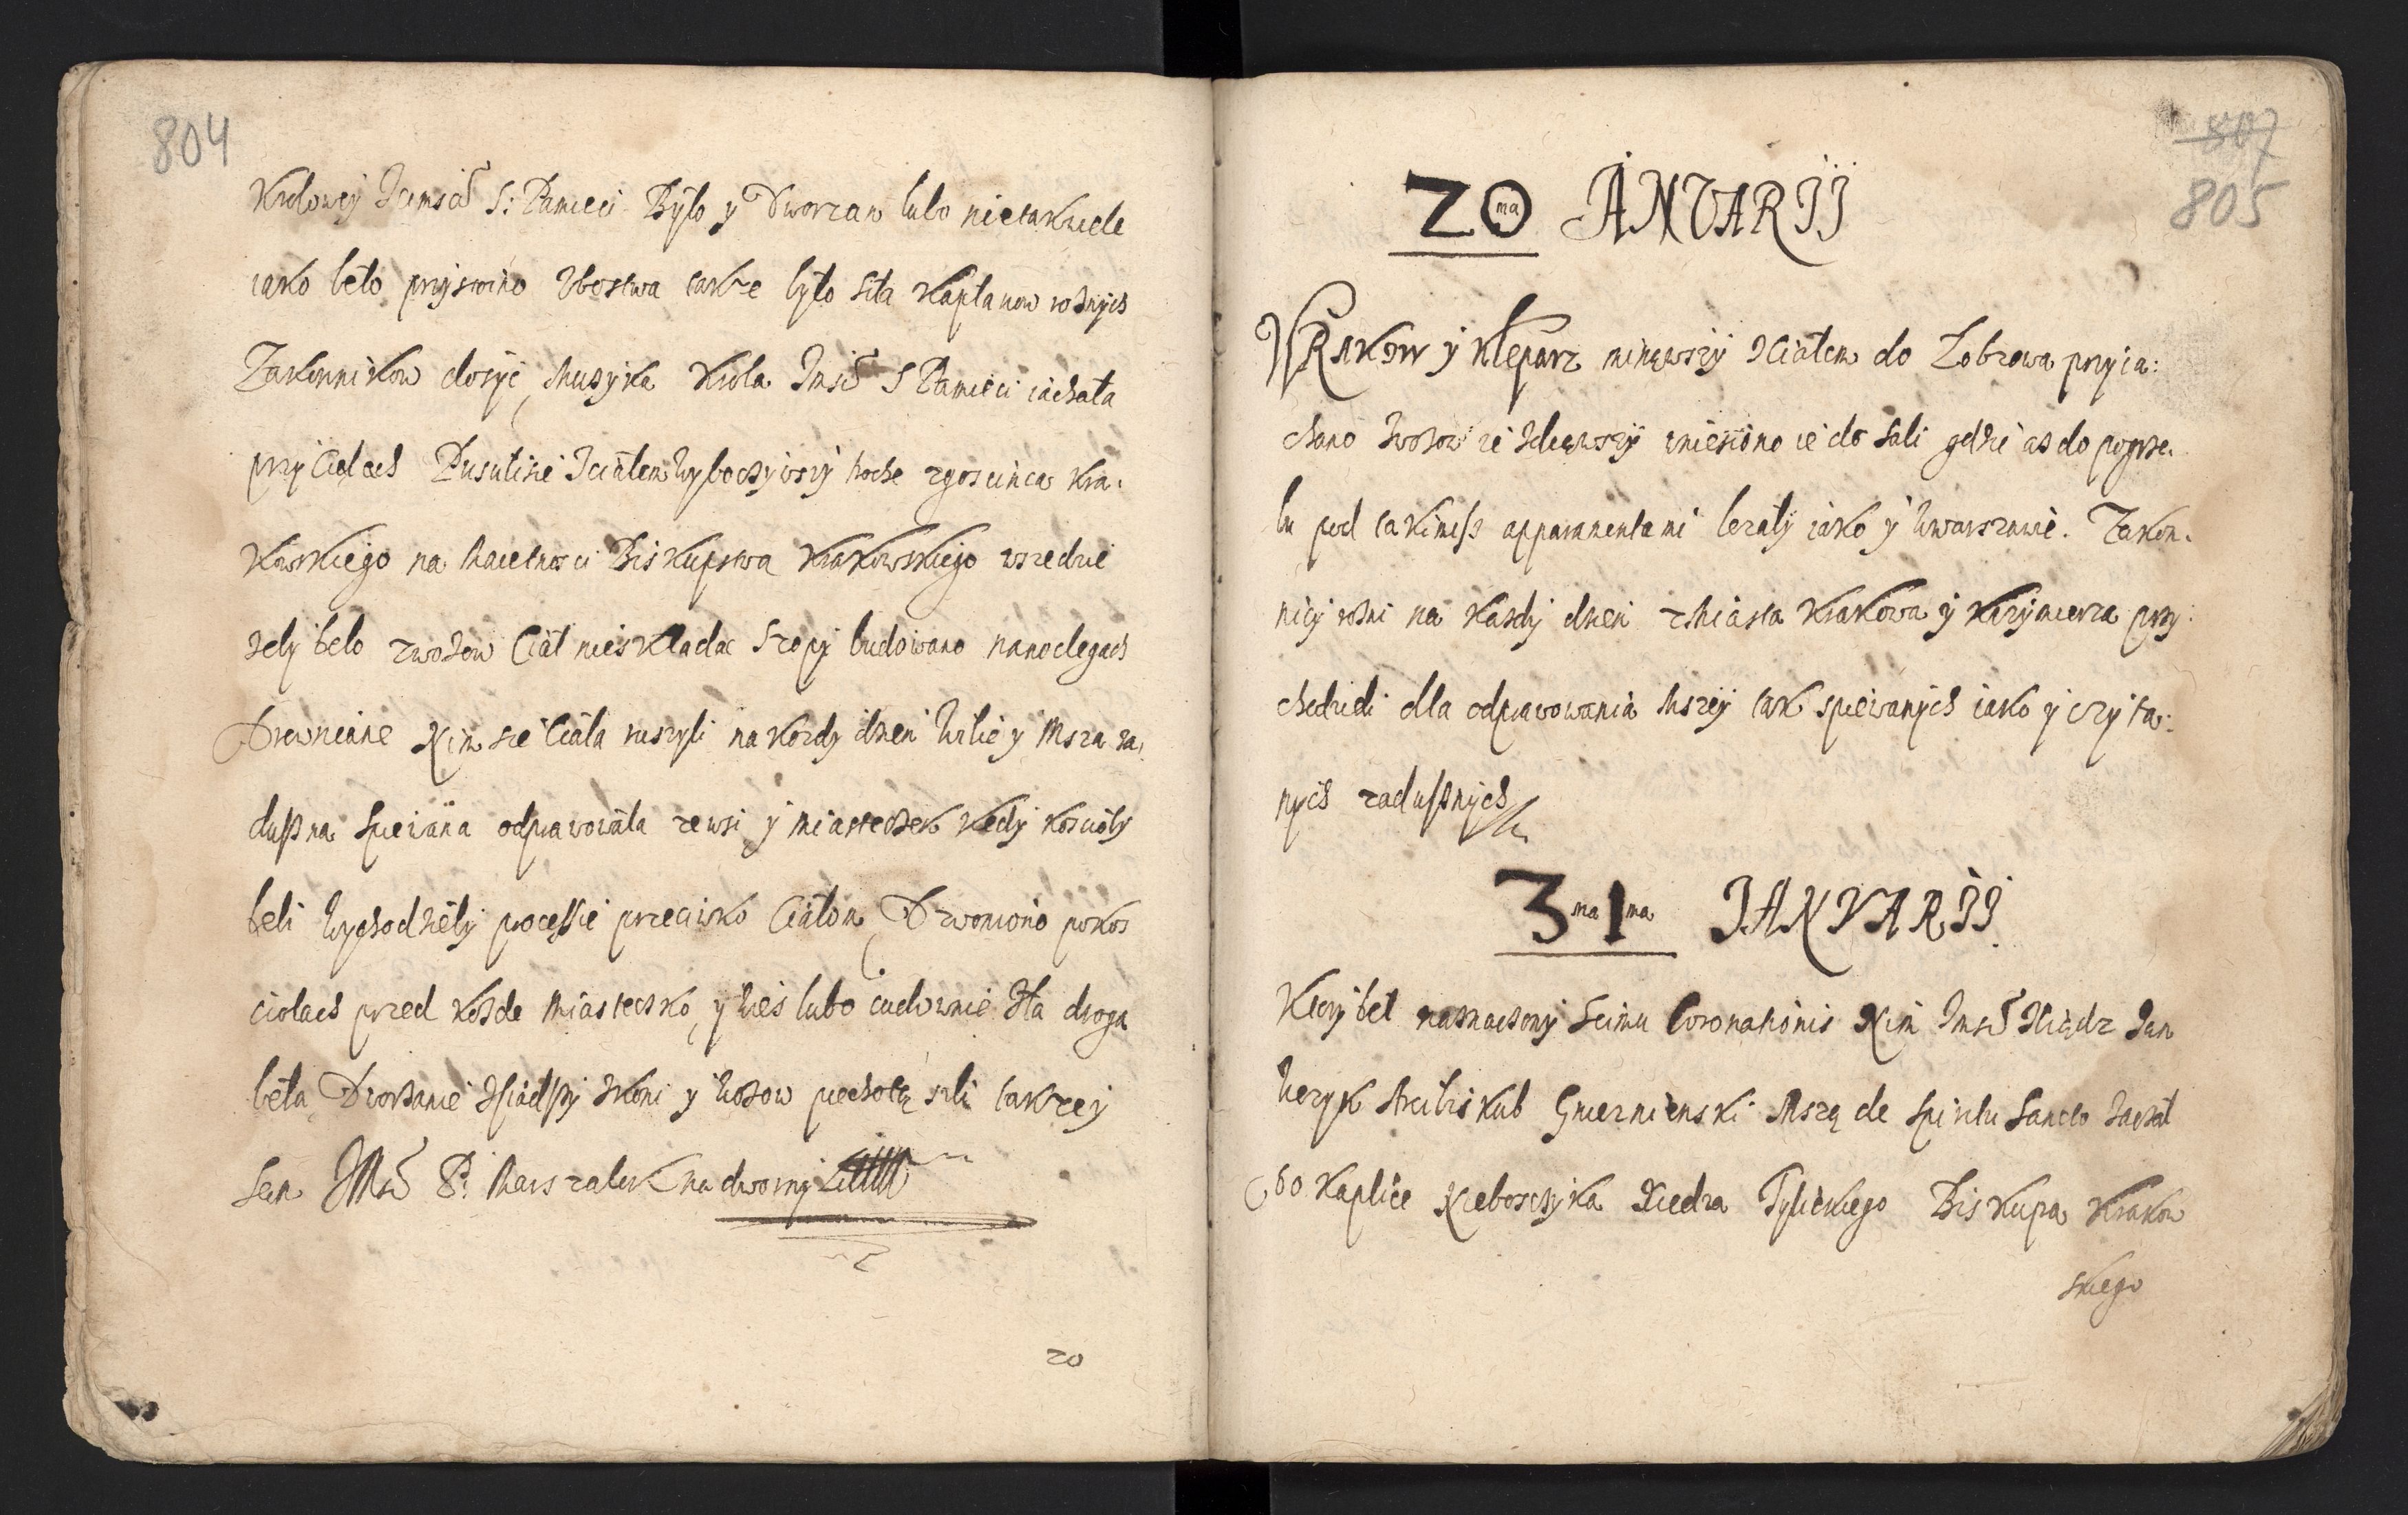 804
Krolowey Jeimści S: Pamieci Było y Dworzan lubo nietakwiele
iako beło przystoino Vbostwa takze było siła Kapłanow roznych
Zakonnikow dosyć, Musyka Krola Jmsći S Pamieci iachała
przy Ciałach Pusulisie Zciałem wyboczywszy troche zgoscinca Kra:
Kowskiego na Maietnosci Biskupstwa Krakowskiego wszedzie
zeby beło zwozow Ciał nieskładac Szopy budowano nanoclegach
Drewniane Nim sie Ciała ruszyli na kozdy dzien Wilie y Msza za,
duszna Spiewana odprawowała zewsi y miasteczek kedy koscioły
beli Wychodzieły processie przeciwko Ciałom, Dzwoniono pokos
ciołach przed kozde Miasteczko, y wies lubo cudownie zła droga
beła, Dworzanie zsiadszy zkoni y wozow piechotą szli takze y
Sam JMść P: Marszałek nadworny
20
807
805
20 ma IANVARII
KRakow y Kleparz minąwszy Zciałem do Łobzowa przyia:
chano zwozow ie zdiąwszy wniesiono ie do Sali gdzie asz do pogrze.
bu pod takimisz apparamentami lezały iako y wWarszawie. Zakon.
nicy rozni na kazdy dzien zMiasta Krakowa y Kazymierza przy:
chodzieli dla odprawowania Mszey tak spiewanych iako y czyta:
nych zadusznych
3 ma 1 ma JANVARII
Ktory beł naznaczony Seimu Coronationis Nim Jmsć Xiądz Jan
Wezyk Arcibiskub Gnieznienski Mszą de Spiritu Sancto zaczał
do Kaplice Nieboszczyka Xiedza Tylickiego Biskupa Krakow
skiego